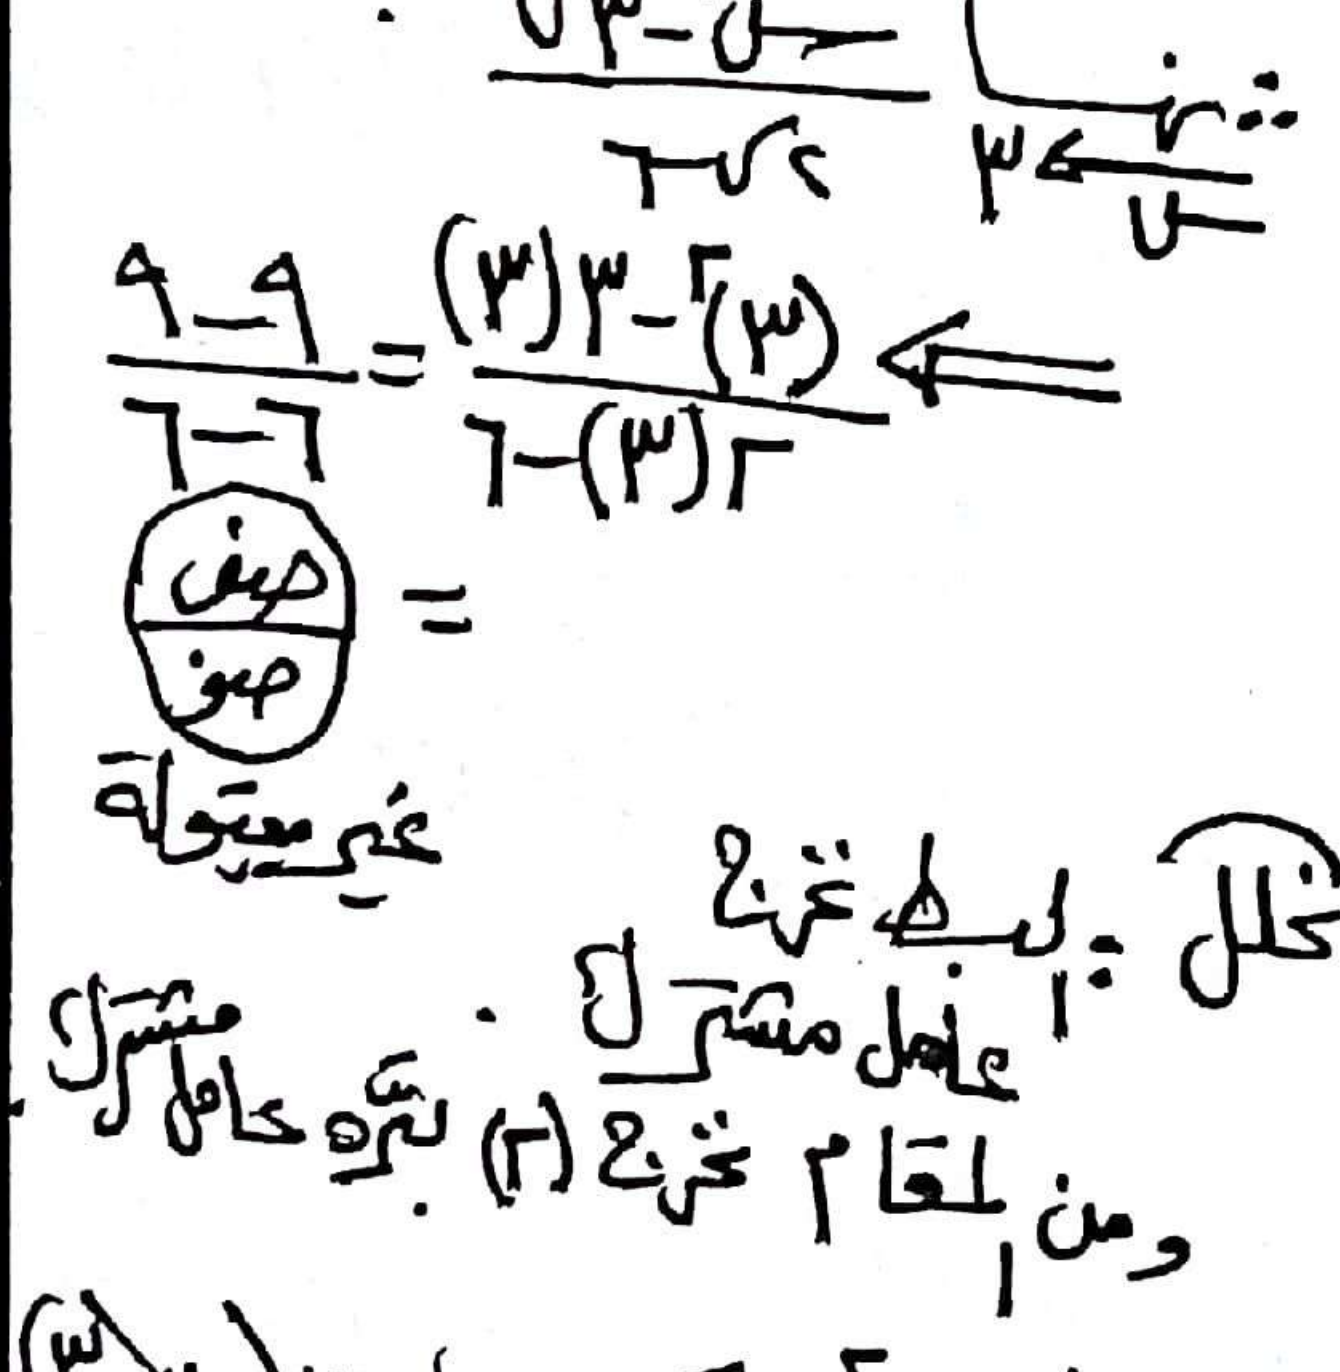 نهـــا س − ٣ س
س ← ٣ ٢س − ٦
⇐ (٣)٢ − ٣(٣) = ٩ − ٩
٢(٣) − ٦ ٦ − ٦
= صفر
صفر
غير مقبولة
نحلل : البسط نخرج
عامل مشترك
ومن المقام نخرج (٢) عامل مشترك